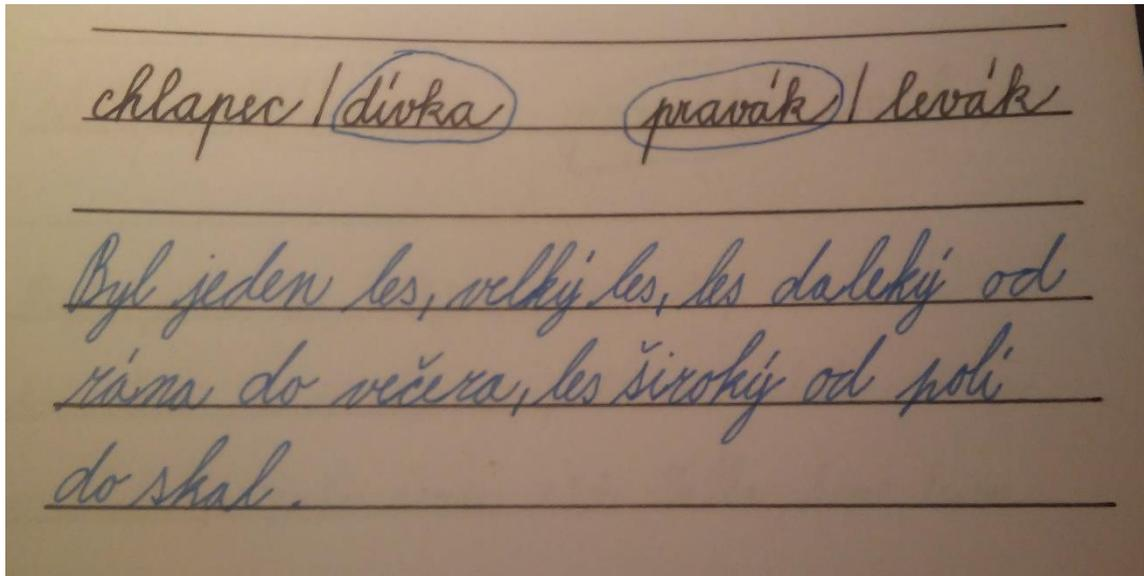 chlapec / dívka pravák / levák
Byl jeden les, velký les, les daleký od
rána do večera, les široký od polí
do skal.